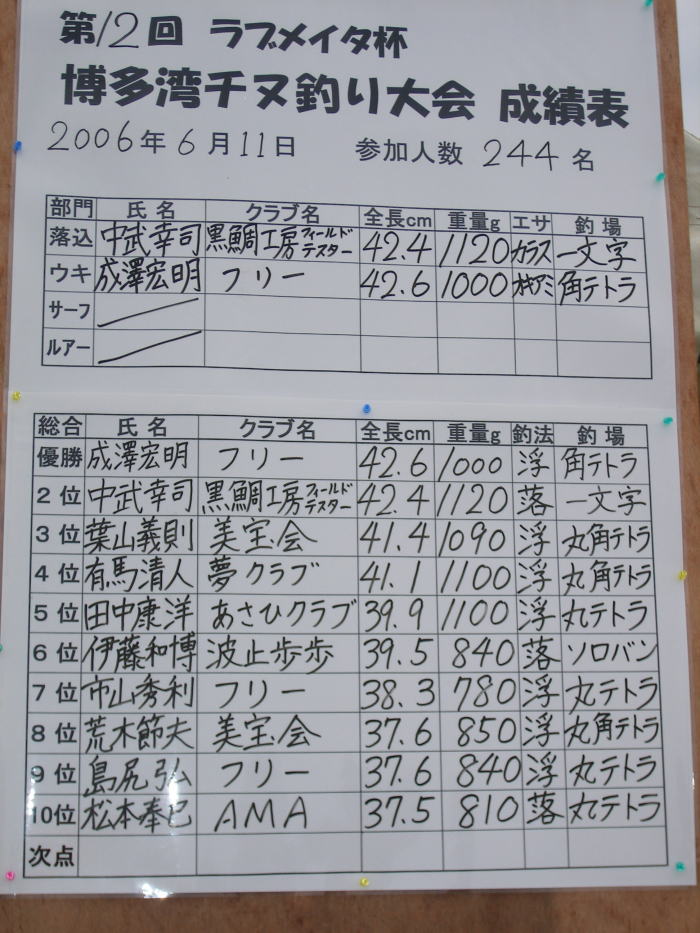 第12回 ラブメイタ杯
博多湾チヌ釣り大会 成績表
2006年6月11日 参加人数 244名
部門 氏名 クラブ名 全長cm 重量g エサ 釣場
落込 中武幸司 黒鯛工房フィールドテスター 42.4 1120 カラス 一文字
ウキ 成澤宏明 フリー 42.6 1000 オキアミ 角テトラ
サーフ
ルアー
総合 氏名 クラブ名 全長cm 重量g 釣法 釣場
優勝 成澤宏明 フリー 42.6 1000 浮 角テトラ
2位 中武幸司 黒鯛工房フィールドテスター 42.4 1120 落 一文字
3位 葉山義則 美宝会 41.4 1090 浮 丸角テトラ
4位 有馬清人 夢クラブ 41.1 1100 浮 丸角テトラ
5位 田中康洋 あさひクラブ 39.9 1100 浮 丸テトラ
6位 伊藤和博 波止歩歩 39.5 840 落 ソロバン
7位 市山秀利 フリー 38.3 780 浮 丸テトラ
8位 荒木節夫 美宝会 37.6 850 浮 丸角テトラ
9位 島尻弘 フリー 37.6 840 浮 丸テトラ
10位 松本奉巳 AMA 37.5 810 落 丸テトラ
次点